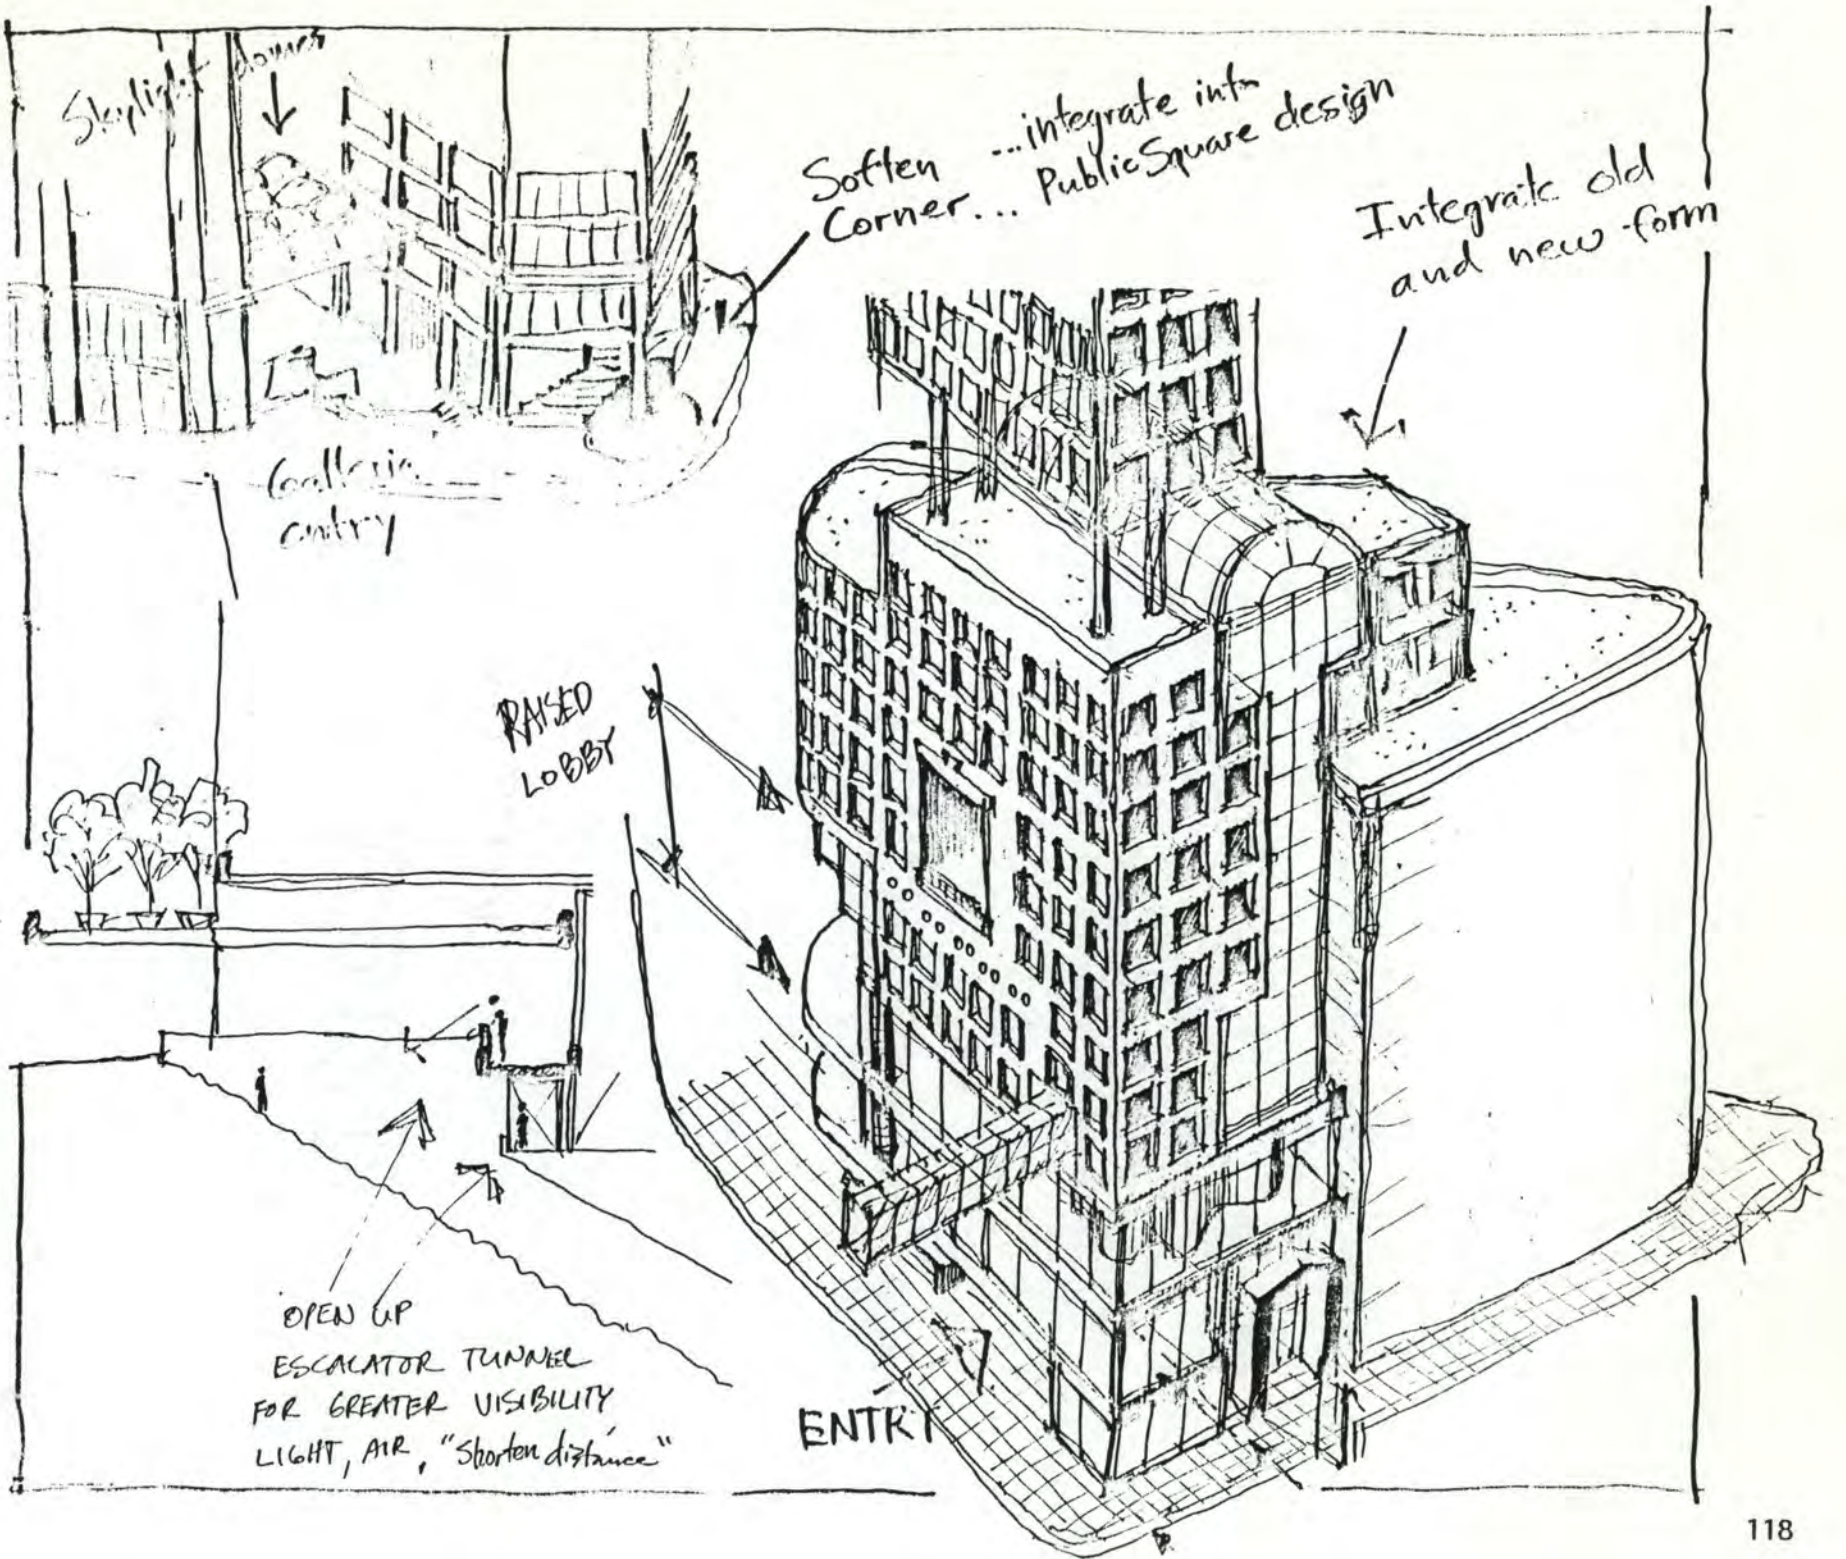 Skylight domes
Soften
Corner...
...integrate into
Public Square design
Integrate old
and new form
Galleria
entry
RAISED
LOBBY
OPEN UP
ESCALATOR TUNNEL
FOR GREATER VISIBILITY
LIGHT, AIR, "Shorten distance"
ENTRY
118